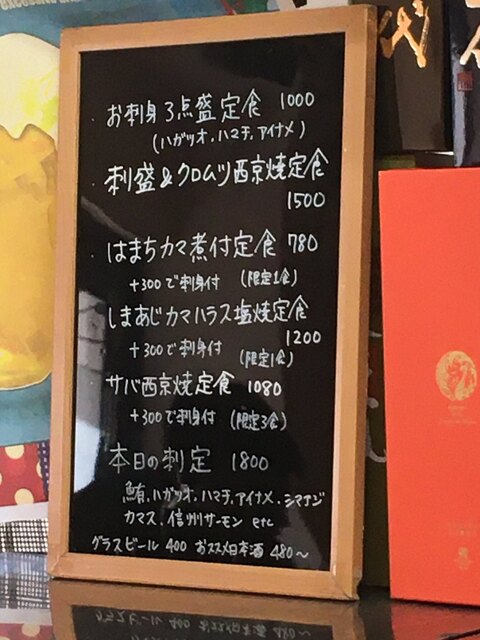 お刺身3点盛定食 1000
(ハガツオ、ハマチ、アイナメ)
刺盛&クロムツ西京焼定食
1500
はまちカマ煮付定食 780
+300で刺身付 (限定1食)
しまあじカマハラス塩焼定食
1200
+300で刺身付 (限定1食)
サバ西京焼定食 1080
+300で刺身付 (限定3食)
本日の刺定 1800
鮪、ハガツオ、ハマチ、アイナメ、シマアジ
カマス、信州サーモン etc
グラスビール 400 おススメ日本酒 480〜